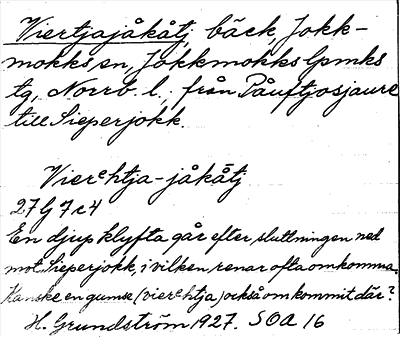 Viertjajåkåtj, bäck, Jokk-
mokks sn, Jokkmokks lpmks
tg, Norrb. l., från Påuftjosjaure
till Sieperjokk.
Vierᵉhtja-jåkåtj
27 G 7 c 4
En djup klyfta går efter sluttningen ned
mot Sieperjokk, i vilken renar ofta omkomma.
Kanske en gumse (vierᵉhtja) också omkommit där?
H. Grundström 1927. SOA 16